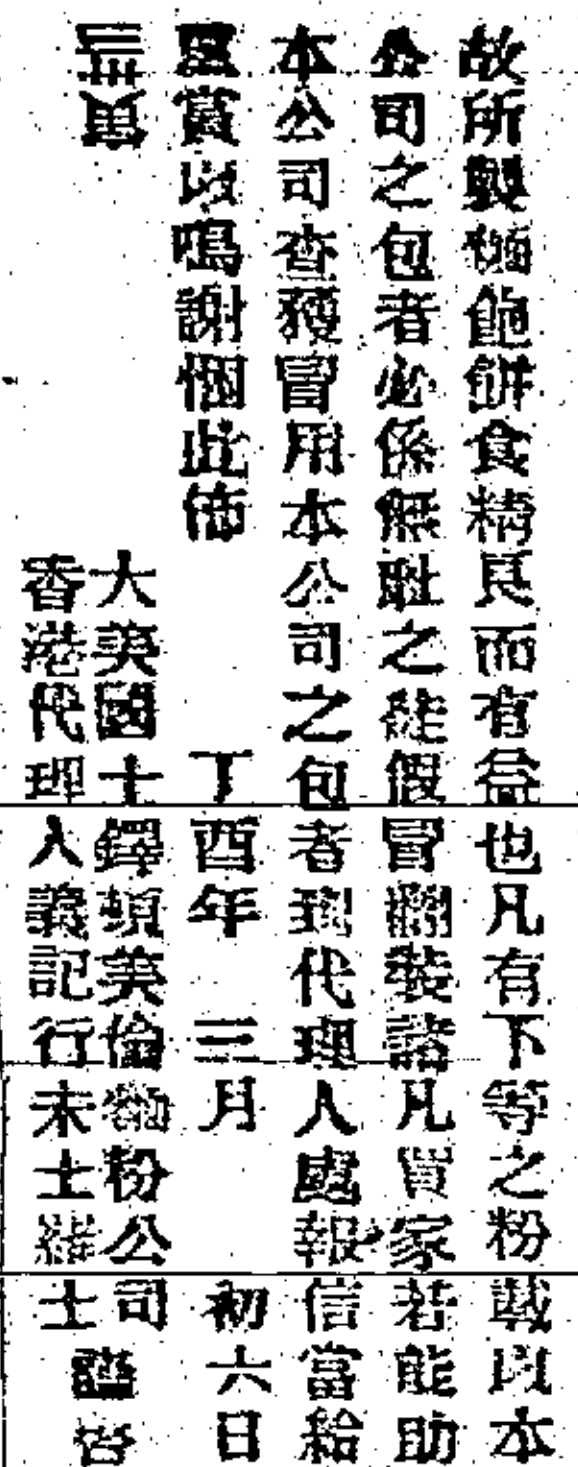 故所製麵飽餅食精良而有益也凡有下等之粉載以本
公司之包者必係無耻之徒假冒翻裝諸凡買家若能助
本公司查獲冒用本公司之包者到代理人處報信當給
重賞以鳴謝悃此佈
丁酉年 三月 初六日
大美國士鐸頓美倫麵粉公司
香港代理人義記行末士 士
謹啓